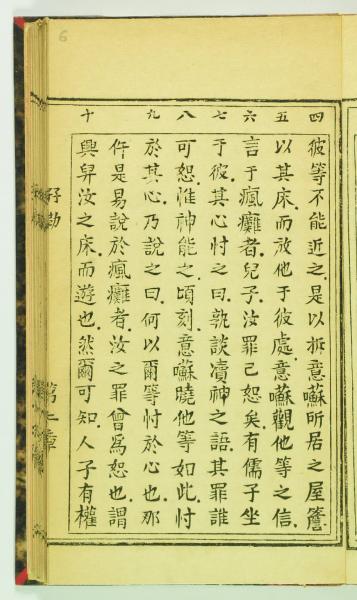 四 五 六 七 八 九 十
彼等不能近之是以拆意蘇所居之屋簷
以其床而放他于彼處意蘇觀他等之信
言于瘋癱者兒子汝罪已恕矣有儒子坐
于彼其心忖之曰孰談瀆神之語其罪誰
可恕惟神能之頃刻意蘇曉他等如此忖
於其心乃說之曰何以爾等忖於心也那
件是易說於瘋癱者汝之罪曾爲恕也謂
興舁汝之床而遊也然爾可知人子有權
第二章
6